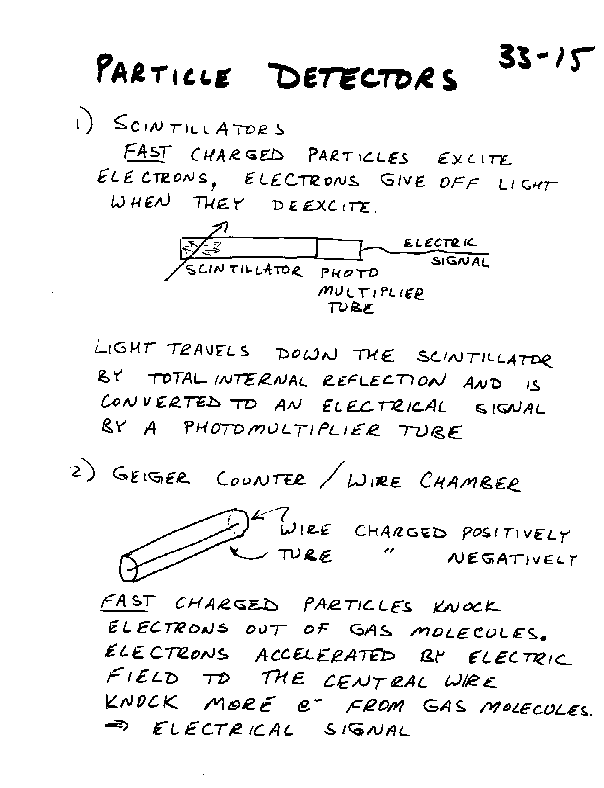 33-15
PARTICLE DETECTORS
1) SCINTILLATORS
FAST CHARGED PARTICLES EXCITE
ELECTRONS, ELECTRONS GIVE OFF LIGHT
WHEN THEY DEEXCITE.
ELECTRIC
SIGNAL
SCINTILLATOR PHOTO
MULTIPLIER
TUBE
LIGHT TRAVELS DOWN THE SCINTILLATOR
BY TOTAL INTERNAL REFLECTION AND IS
CONVERTED TO AN ELECTRICAL SIGNAL
BY A PHOTOMULTIPLIER TUBE
2) GEIGER COUNTER / WIRE CHAMBER
WIRE CHARGED POSITIVELY
TUBE " NEGATIVELY
FAST CHARGED PARTICLES KNOCK
ELECTRONS OUT OF GAS MOLECULES.
ELECTRONS ACCELERATED BY ELECTRIC
FIELD TO THE CENTRAL WIRE
KNOCK MORE e- FROM GAS MOLECULES.
⇒ ELECTRICAL SIGNAL